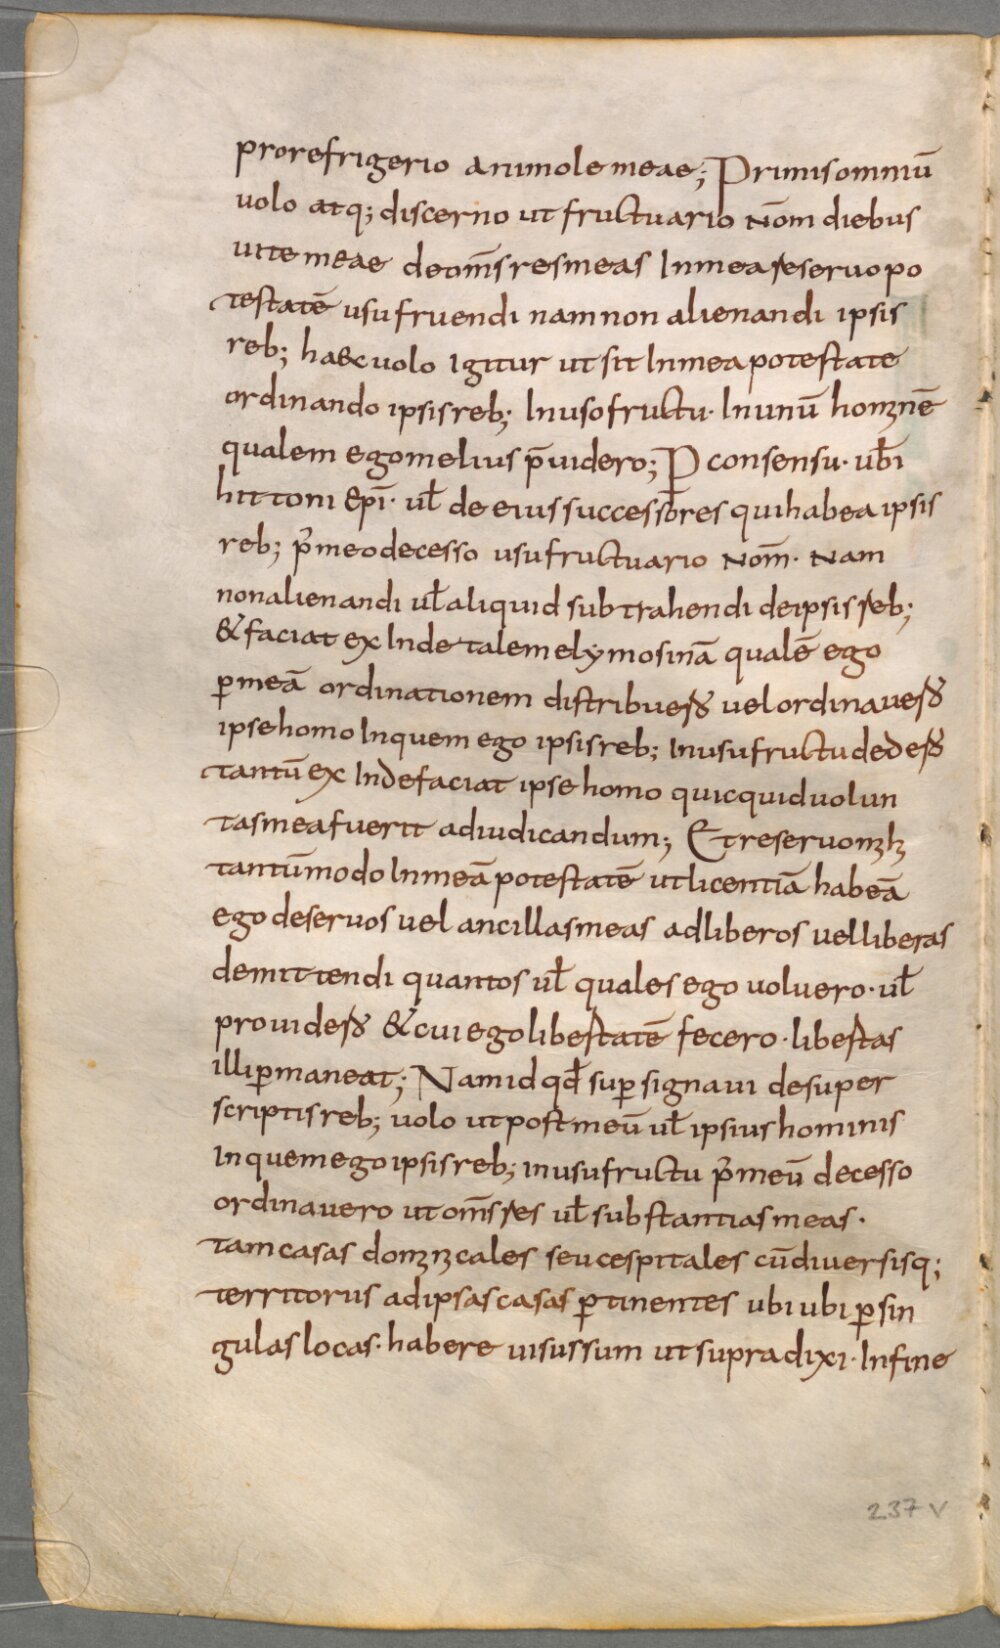 pro refrigerio animole meae; Primis omniū
uolo atq; discerno ut fructuario nom̄ diebus
uite meae de om̄s res meas In mea reseruo po
testatē usu fruendi nam non alienandi ipsis
reb; haec uolo Igitur ut sit In mea potestate
ordinando ipsis reb; In uso fructu· In unū hominē
qualem ego melius p̄uidero; P consensu· ub̄i
hittoni ep̄i· ul̄ de eius successores qui habea ipsis
reb; p̄ meo decesso usu fructuario nom̄· Nam
non alienandi ul̄ aliquid subtrahendi de ipsis reb;
& faciat ex Inde talem elymosinā qualē ego
ꝑ meā ordinationem distribuerō uel ordinauerō
ipse homo In quem ego ipsis reb; In usu fructu dederō
tantū ex Inde faciat ipse homo quicquid uolun
tas mea fuerit adiudicandum; Et reseruo mihi
tantūmodo In meā potestatē ut licentiā habeā
ego de seruos uel ancillas meas ad liberos uel liberas
demittendi quantos ul̄ quales ego uoluero· ul̄
prouiderō & cui ego libertatē fecero· libertas
illi ꝑmaneat; Nam id qd̄ suꝑ signaui de super
scriptis reb; uolo ut post meū ul̄ ipsius hominis
In quem ego ipsis reb; in usu fructu p̄ meū decesso
ordinauero ut om̄s res ul̄ substantias meas·
tam casas dominicales seu cespitales cū diuersisq;
territoriis ad ipsas casas ꝑtinentes ubi ubi ꝑ sin
gulas locas· habere uisus sum ut supra dixi· In fine
237 v